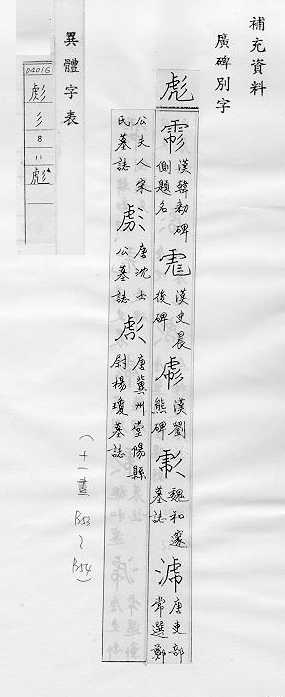 補充資料
廣碑別字
彪
漢韓勑碑
側題名
漢史晨
後碑
漢劉
熊碑
魏和邃
墓誌
唐吏部
常選鄭
公夫人宋
氏墓誌
唐沈士
公墓誌
唐冀州堂陽縣
尉楊瓊墓誌
(十一畫 P.53~P.54)
異體字表
04016
彡
8
11